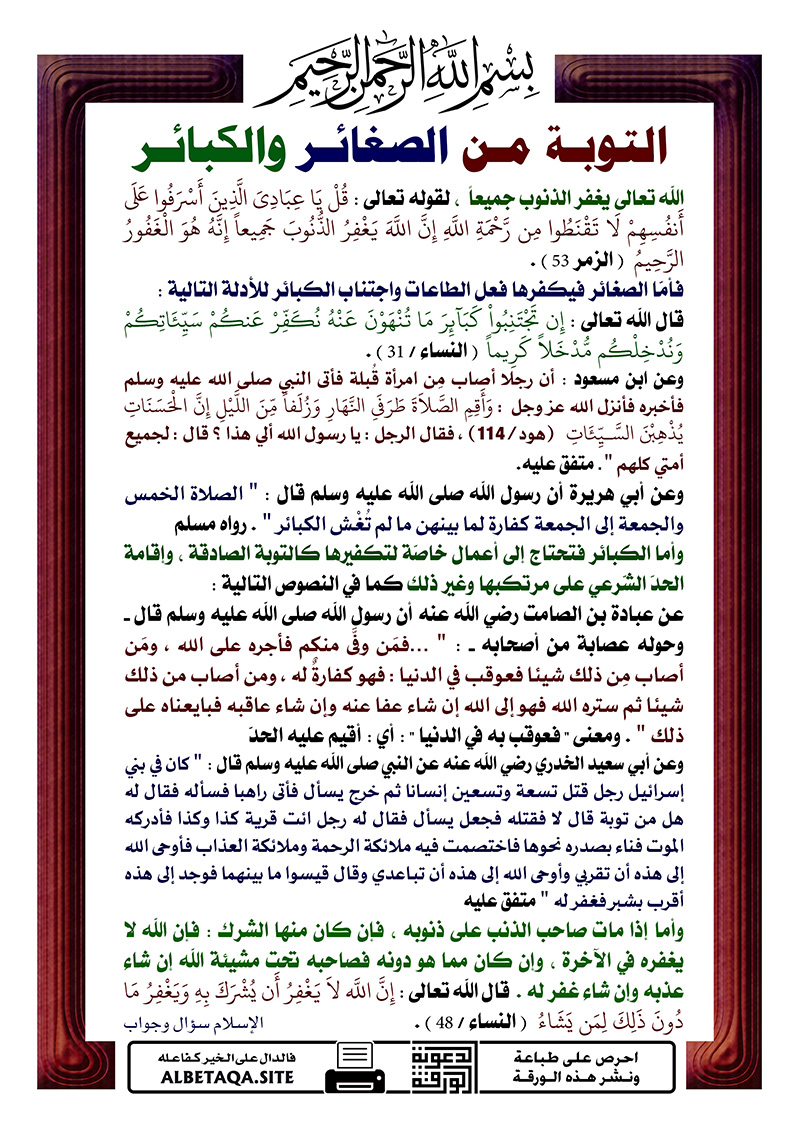 بِسْمِ اللَّهِ الرَّحْمَنِ الرَّحِيمِ
التوبة من الصغائر والكبائر
الله تعالى يغفر الذنوب جميعاً ، لقوله تعالى : قُلْ يَا عِبَادِيَ الَّذِينَ أَسْرَفُوا عَلَى
أَنفُسِهِمْ لَا تَقْنَطُوا مِن رَّحْمَةِ اللَّهِ إِنَّ اللَّهَ يَغْفِرُ الذُّنُوبَ جَمِيعاً إِنَّهُ هُوَ الْغَفُورُ
الرَّحِيمُ ( الزمر 53 ) .
فأما الصغائر فيكفرها فعل الطاعات واجتناب الكبائر للأدلة التالية :
قال الله تعالى : إِن تَجْتَنِبُواْ كَبَآئِرَ مَا تُنْهَوْنَ عَنْهُ نُكَفِّرْ عَنكُمْ سَيِّئَاتِكُمْ
وَنُدْخِلْكُم مُّدْخَلاً كَرِيماً ( النساء / 31 ) .
وعن ابن مسعود : أن رجلا أصاب مِن امرأة قُبلة فأتى النبي صلى الله عليه وسلم
فأخبره فأنزل الله عز وجل : وَأَقِمِ الصَّلاَةَ طَرَفَيِ النَّهَارِ وَزُلَفاً مِّنَ اللَّيْلِ إِنَّ الْحَسَنَاتِ
يُذْهِبْنَ السَّيِّئَاتِ (هود/114) ، فقال الرجل : يا رسول الله ألي هذا ؟ قال : لجميع
أمتي كلهم ". متفق عليه.
وعن أبي هريرة أن رسول الله صلى الله عليه وسلم قال : " الصلاة الخمس
والجمعة إلى الجمعة كفارة لما بينهن ما لم تُغْش الكبائر " . رواه مسلم
وأما الكبائر فتحتاج إلى أعمال خاصة لتكفيرها كالتوبة الصادقة ، وإقامة
الحدّ الشرعي على مرتكبها وغير ذلك كما في النصوص التالية :
عن عبادة بن الصامت رضي الله عنه أن رسول الله صلى الله عليه وسلم قال ـ
وحوله عصابة من أصحابه ـ : " ...فمَن وفَّى منكم فأجره على الله ، ومَن
أصاب مِن ذلك شيئا فعوقب في الدنيا : فهو كفارةٌ له ، ومن أصاب من ذلك
شيئا ثم ستره الله فهو إلى الله إن شاء عفا عنه وإن شاء عاقبه فبايعناه على
ذلك " . ومعنى " فعوقب به في الدنيا " : أي : أقيم عليه الحدّ
وعن أبي سعيد الخدري رضي الله عنه عن النبي صلى الله عليه وسلم قال : " كان في بني
إسرائيل رجل قتل تسعة وتسعين إنسانا ثم خرج يسأل فأتى راهبا فسأله فقال له
هل من توبة قال لا فقتله فجعل يسأل فقال له رجل ائت قرية كذا وكذا فأدركه
الموت فناء بصدره نحوها فاختصمت فيه ملائكة الرحمة وملائكة العذاب فأوحى الله
إلى هذه أن تقربي وأوحى الله إلى هذه أن تباعدي وقال قيسوا ما بينهما فوجد إلى هذه
أقرب بشبر فغفر له " متفق عليه
وأما إذا مات صاحب الذنب على ذنوبه ، فإن كان منها الشرك : فإن الله لا
يغفره في الآخرة ، وإن كان مما هو دونه فصاحبه تحت مشيئة الله إن شاء
عذبه وإن شاء غفر له . قال الله تعالى : إِنَّ اللَّه لاَ يَغْفِرُ أَن يُشْرَكَ بِهِ وَيَغْفِرُ مَا
دُونَ ذَلِكَ لِمَن يَشَاءُ ( النساء / 48 ) .
الإسلام سؤال وجواب
احرص على طباعة
ونشر هذه الورقة
الورقة الدعوية
فالدال على الخير كفاعله
ALBETAQA.SITE